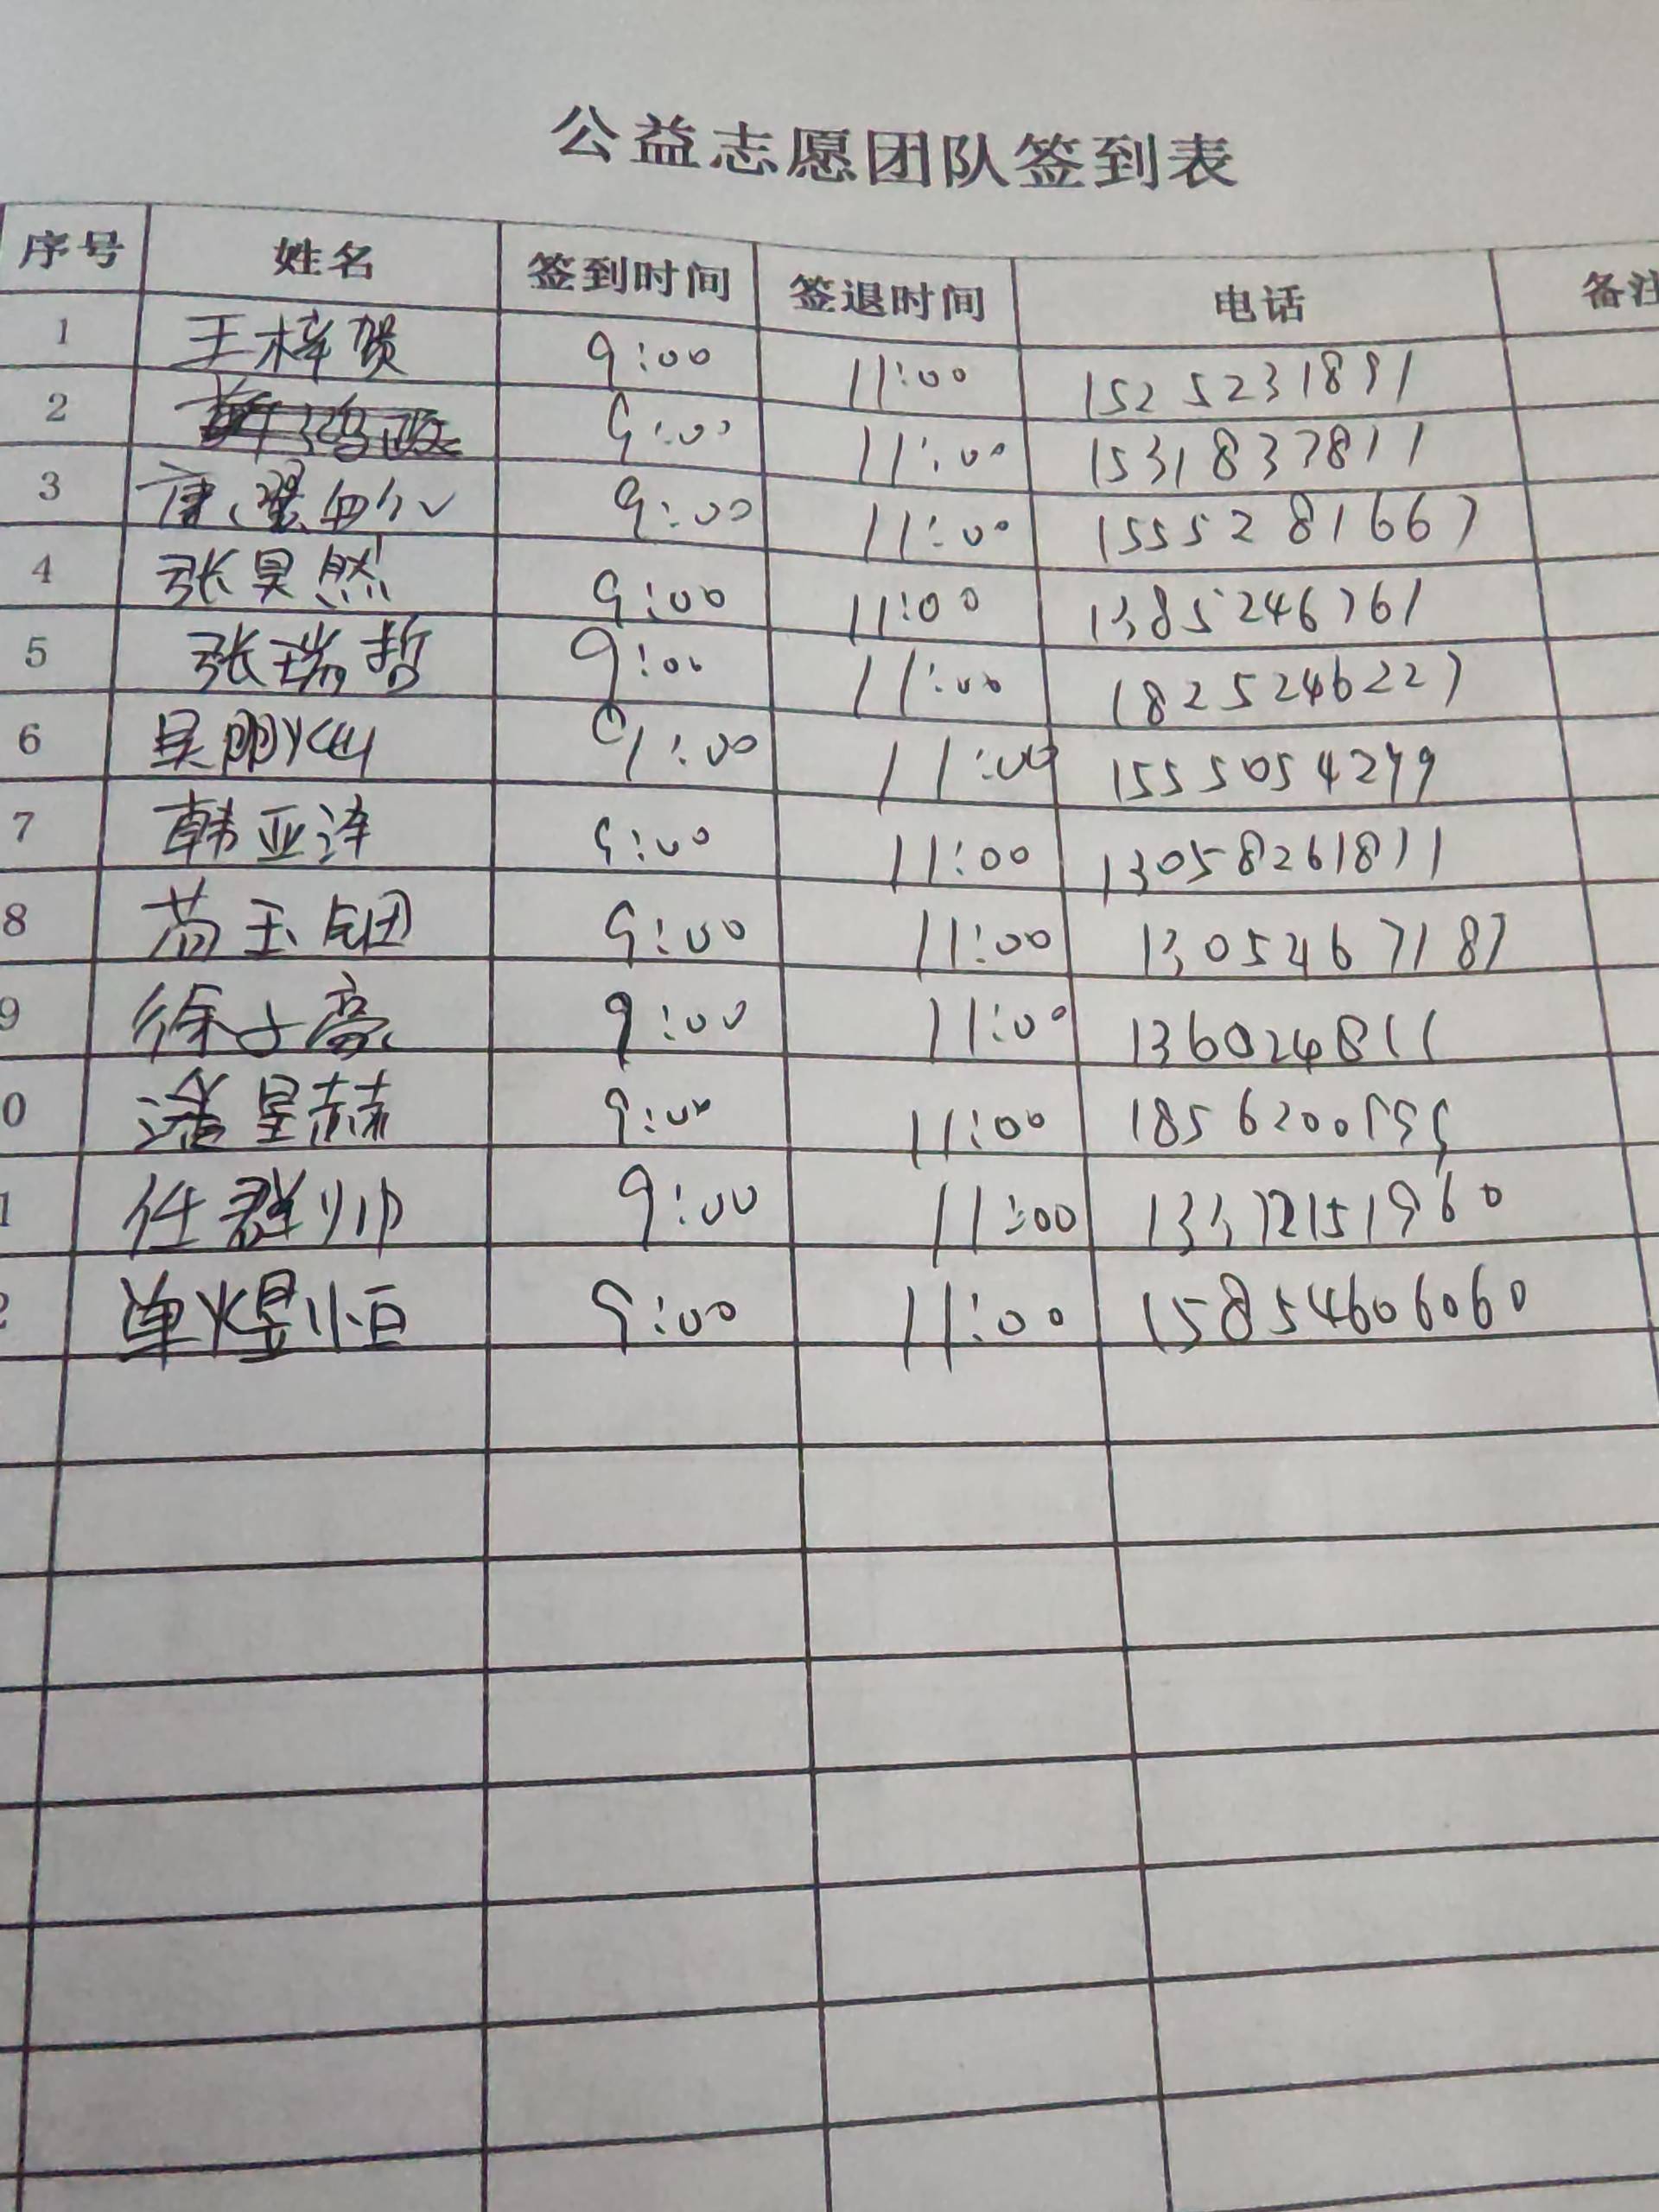 公益志愿团队签到表
序号 姓名 签到时间 签退时间 电话 备注
1 王梓贺 9:00 11:00 1525231891
2 9:00 11:00 1531837811
3 唐 9:00 11:00 1555281667
4 张昊然 9:00 11:00 1385246761
5 张瑞哲 9:00 11:00 1825246227
6 吴 9:00 11:00 1555054279
7 韩亚泽 9:00 11:00 13058261811
8 玉 9:00 11:00 1305467187
9 徐子豪 9:00 11:00 136024811
0 潘星赫 9:00 11:00
1 任群帅 9:00 11:00 13372151960
2 单煜恒 9:00 11:00 15854606060